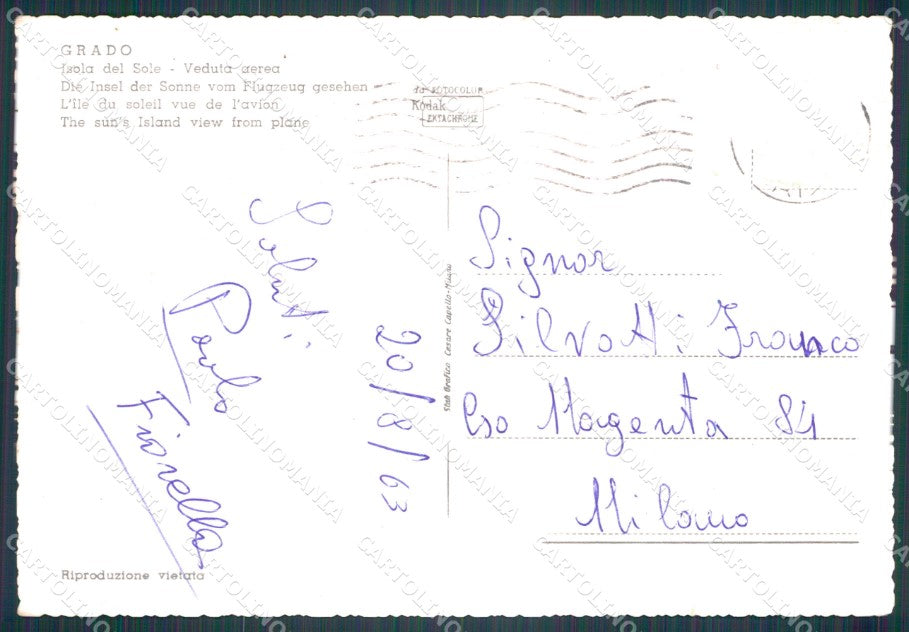 GRADO
Isola del Sole - Veduta aerea
Die Insel der Sonne vom Flugzeug gesehen
L'île du soleil vue de l'avion
The sun's Island view from plane
FOTOCOLOR
Kodak
EKTACHROME
Saluti
Paolo
Fiorella
20/8/63
Stab Grafico Cesare Capello-Milano
Signor
Silvotti Franco
Cso Magenta 84
Milano
Riproduzione vietata
CARTOLINOMANIA